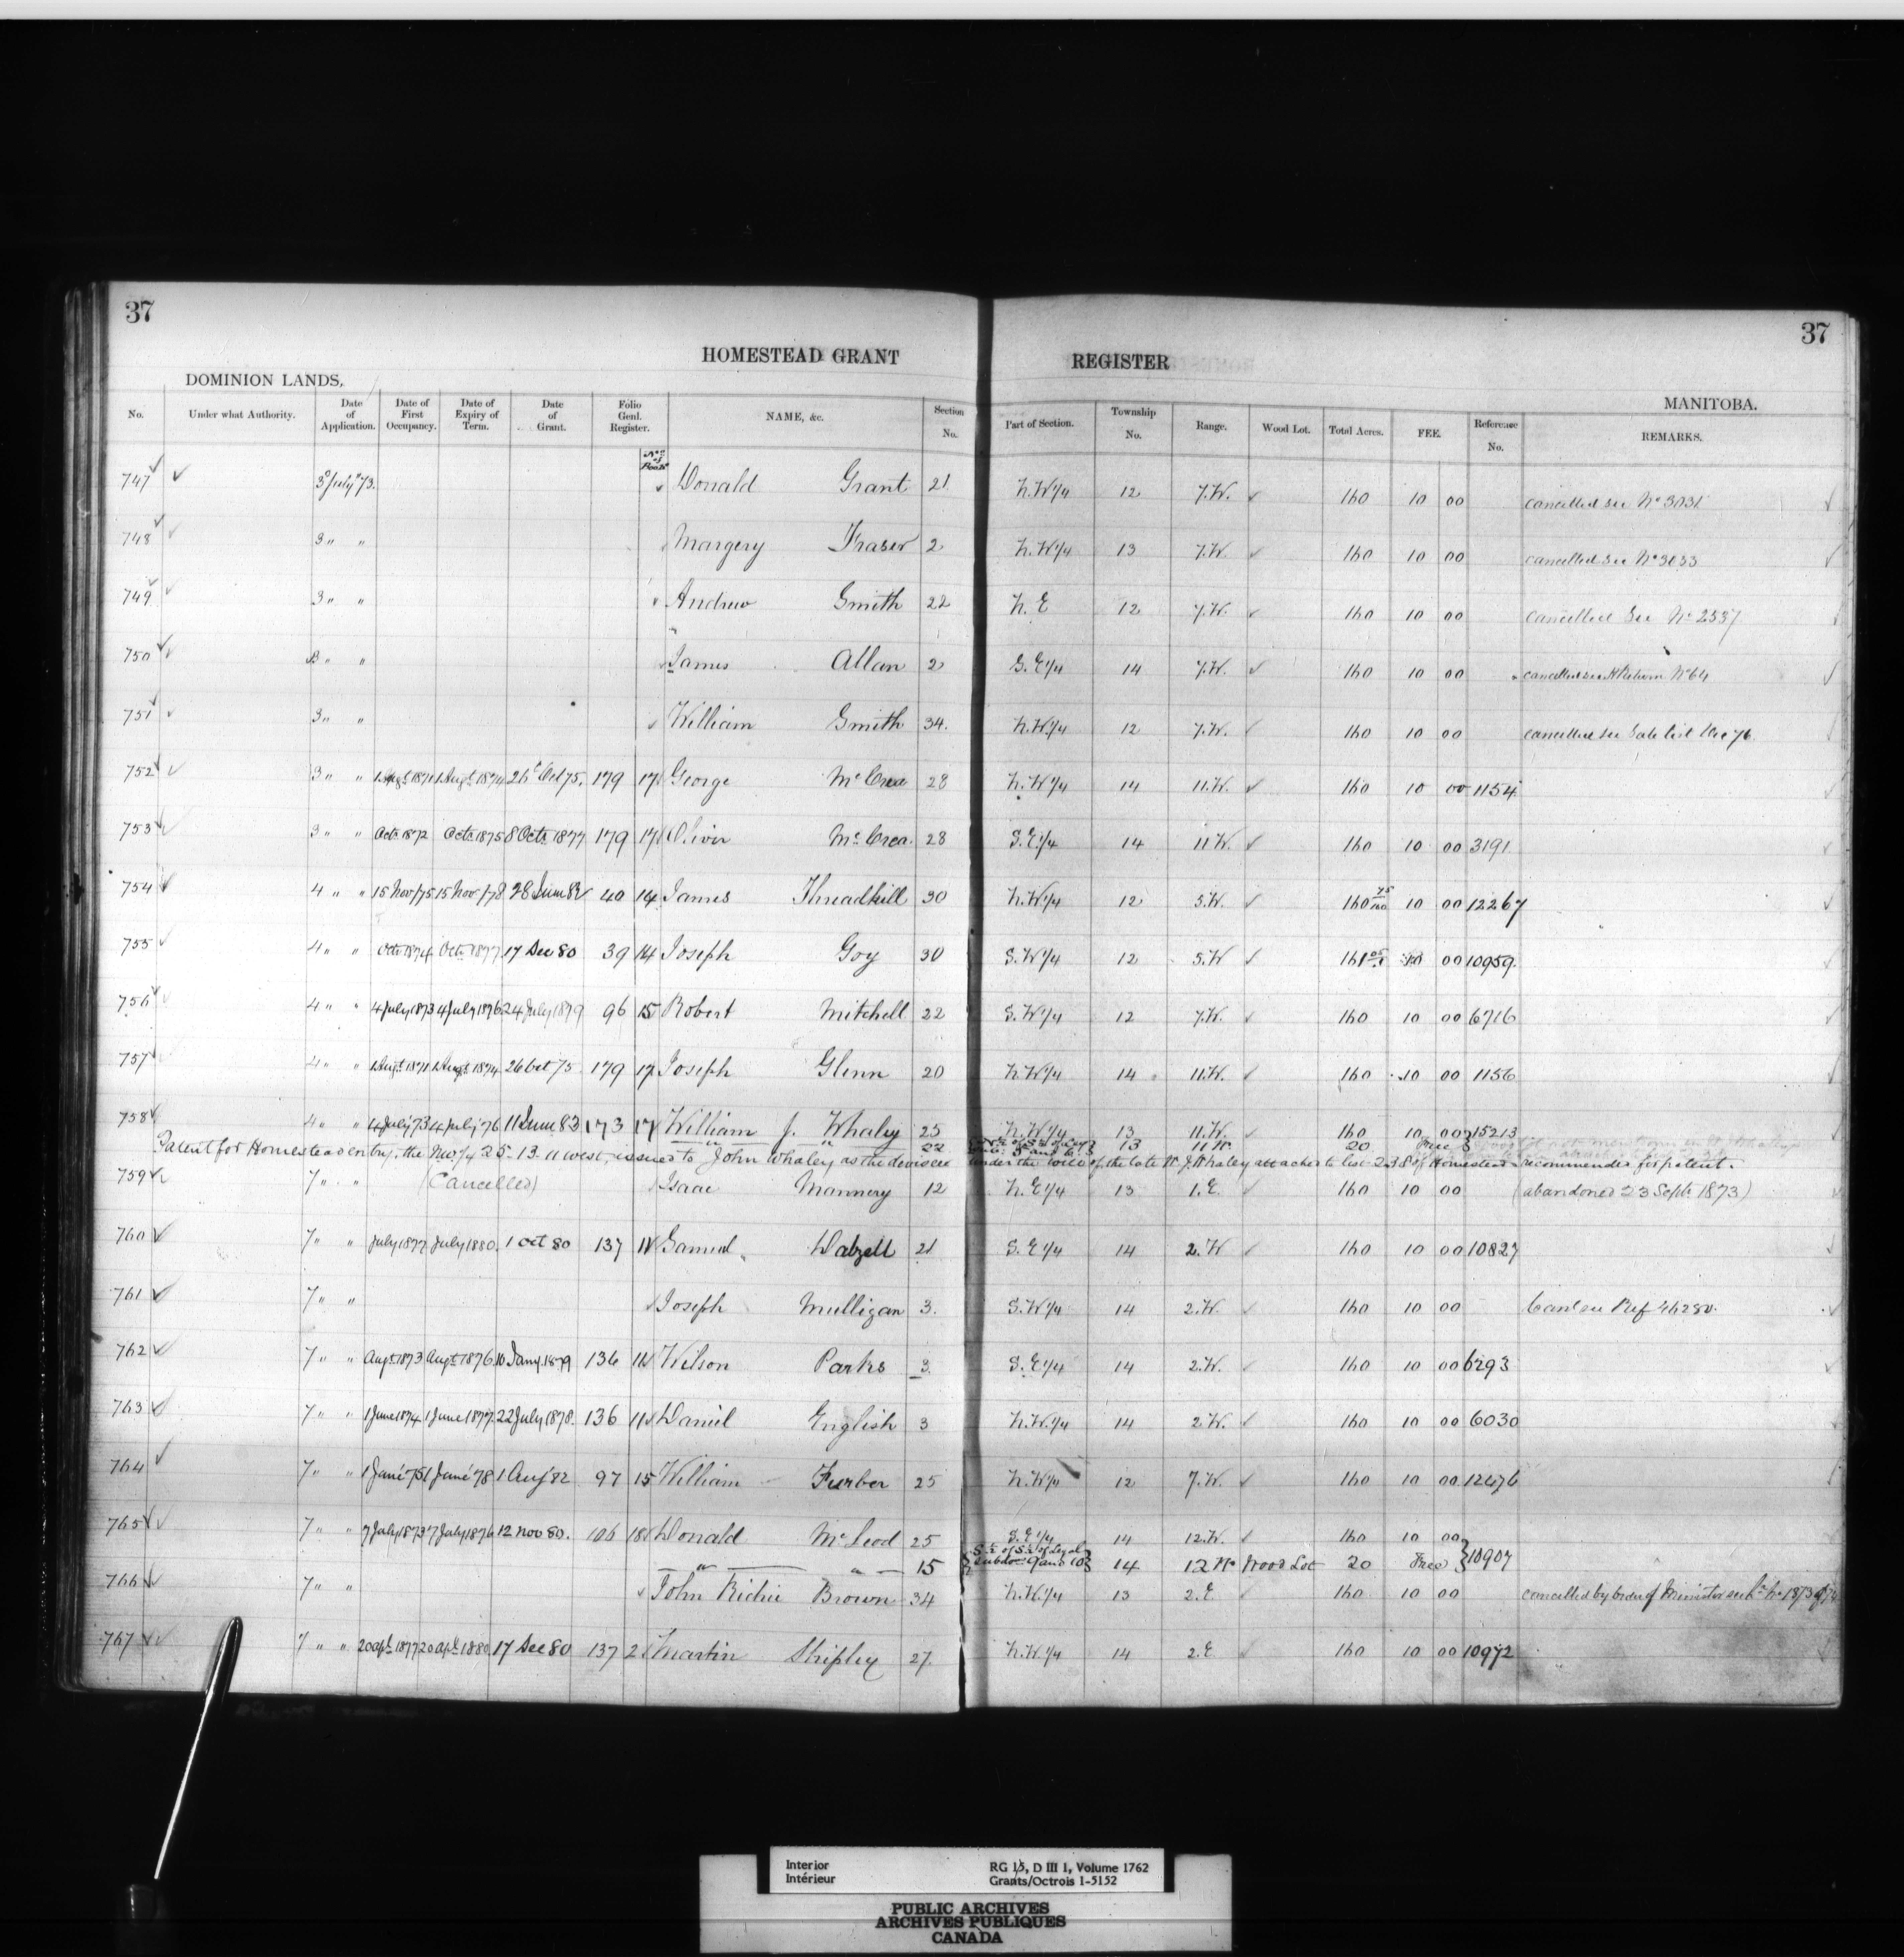 37 37
HOMESTEAD GRANT REGISTER
DOMINION LANDS, MANITOBA.
No. Under what Authority. Date of Application. Date of First Occupancy. Date of Expiry of Term. Date of Grant. Folio Genl. Register. NAME, &c. Section No. Part of Section. Township No. Range. Wood Lot. Total Acres. FEE. Reference No. REMARKS.
No of Book
747 3d July '73. Donald Grant 21 N.W 1/4 12 7.W. 160 10 00 cancelled see No 3031
748 3 " " Margery Fraser 2 N.W 1/4 13 7.W. 160 10 00 cancelled see No 3033
749 3 " " Andrew Smith 22 N.E 12 7.W. 160 10 00 cancelled See No 2537
750 3 " " James Allan 2 S.E 1/4 14 7.W. 160 10 00 cancelled see Return No 64
751 3 " " William Smith 34. N.W. 1/4 12 7.W. 160 10 00 cancelled see Sale list Dec 76.
752 3 " " 1 Augt 1871 1 Augt 1874 26 Oct 75. 179 17 George McCrea 28 N.W 1/4 14 11.W. 160 10 00 1154
753 3 " " Octr 1872 Octr 1875 8 Octr 1877 179 17 Oliver McCrea. 28 S.E 1/4 14 11 W. 160 10 00 3191
754 4 " " 15 Nov /75 15 Nov /78 28 June 82 40 14 James Threadkill 30 N.W 1/4 12 5.W. 160 75/100 10 00 12267
755 4 " " Octr 1874 Octr 1877 17 Dec 80 39 14 Joseph Goy 30 S.W 1/4 12 5.W 161 05 10 00 10959.
756 4 " " 4 July 1873 4 July 1876 24 July 1879 96 15 Robert Mitchell 22 S.W 1/4 12 7.W. 160 10 00 6716
757 4 " " 1 Augt 1871 1 Augt 1874 26 Oct 75 179 17 Joseph Glenn 20 N.W 1/4 14 11.W. 160 10 00 1156
758 4 " " 4 July 73 4 July 76 11 June 83 173 17 William J. Whaley 25 N.W 1/4 13 11.W. 160 10 00 15213
" " 22 5 and 6 13 11 W. 20 Free
Patent for Homestead entry, the NW 1/4 25-13-11 west, issued to John Whaley as the devisee under the will of the late W. J. Whaley attached to list 238 of Homesteads recommended for patent.
759 7 " " (Cancelled) Isaac Mannery 12 N.E 1/4 13 1.E. 160 10 00 (abandoned 23 Septr 1873)
760 7 " " July 1877 July 1880. 1 Oct 80 137 11 Samuel Dalzell 21 S.E 1/4 14 2.W 160 10 00 10827
761 7 " " Joseph Mulligan 3. S.W 1/4 14 2.W. 160 10 00 Canl see Ref 46280.
762 7 " " Augt 1873 Augt 1876. 16 Jany 1879 136 11 Wilson Parks 3. S.E 1/4 14 2.W. 160 10 00 6293
763 7 " " 1 June 1874 1 June 1877. 22 July 1878. 136 11 Daniel English 3 N.W. 1/4 14 2 W. 160 10 00 6030
764 7 " " 1 June 75 1 June 78 1 Aug 82 97 15 William Furber 25 N.W 1/4 12 7.W. 160 10 00 12476
765 7 " " 7 July 1873 7 July 1876 12 Nov 80. 106 18 Donald McLeod 25 S.E 1/4 14 12.W. 160 10 00
" " 15 S 1/2 of S 1/2 of Legal Subdon 9 and 10 14 12 W Wood Lot 20 Free 10907
766 7 " " John Richie Brown 34 N.W. 1/4 13 2.E 160 10 00 cancelled by order of Minister see
767 7 " " 20 Apl 1877 20 Apl 1880. 17 Dec 80 137 2 Martin Shipley 27. N.W. 1/4 14 2.E 160 10 00 10972
Interior RG 15, D III 1, Volume 1762
Intérieur Grants/Octrois 1-5152
PUBLIC ARCHIVES
ARCHIVES PUBLIQUES
CANADA